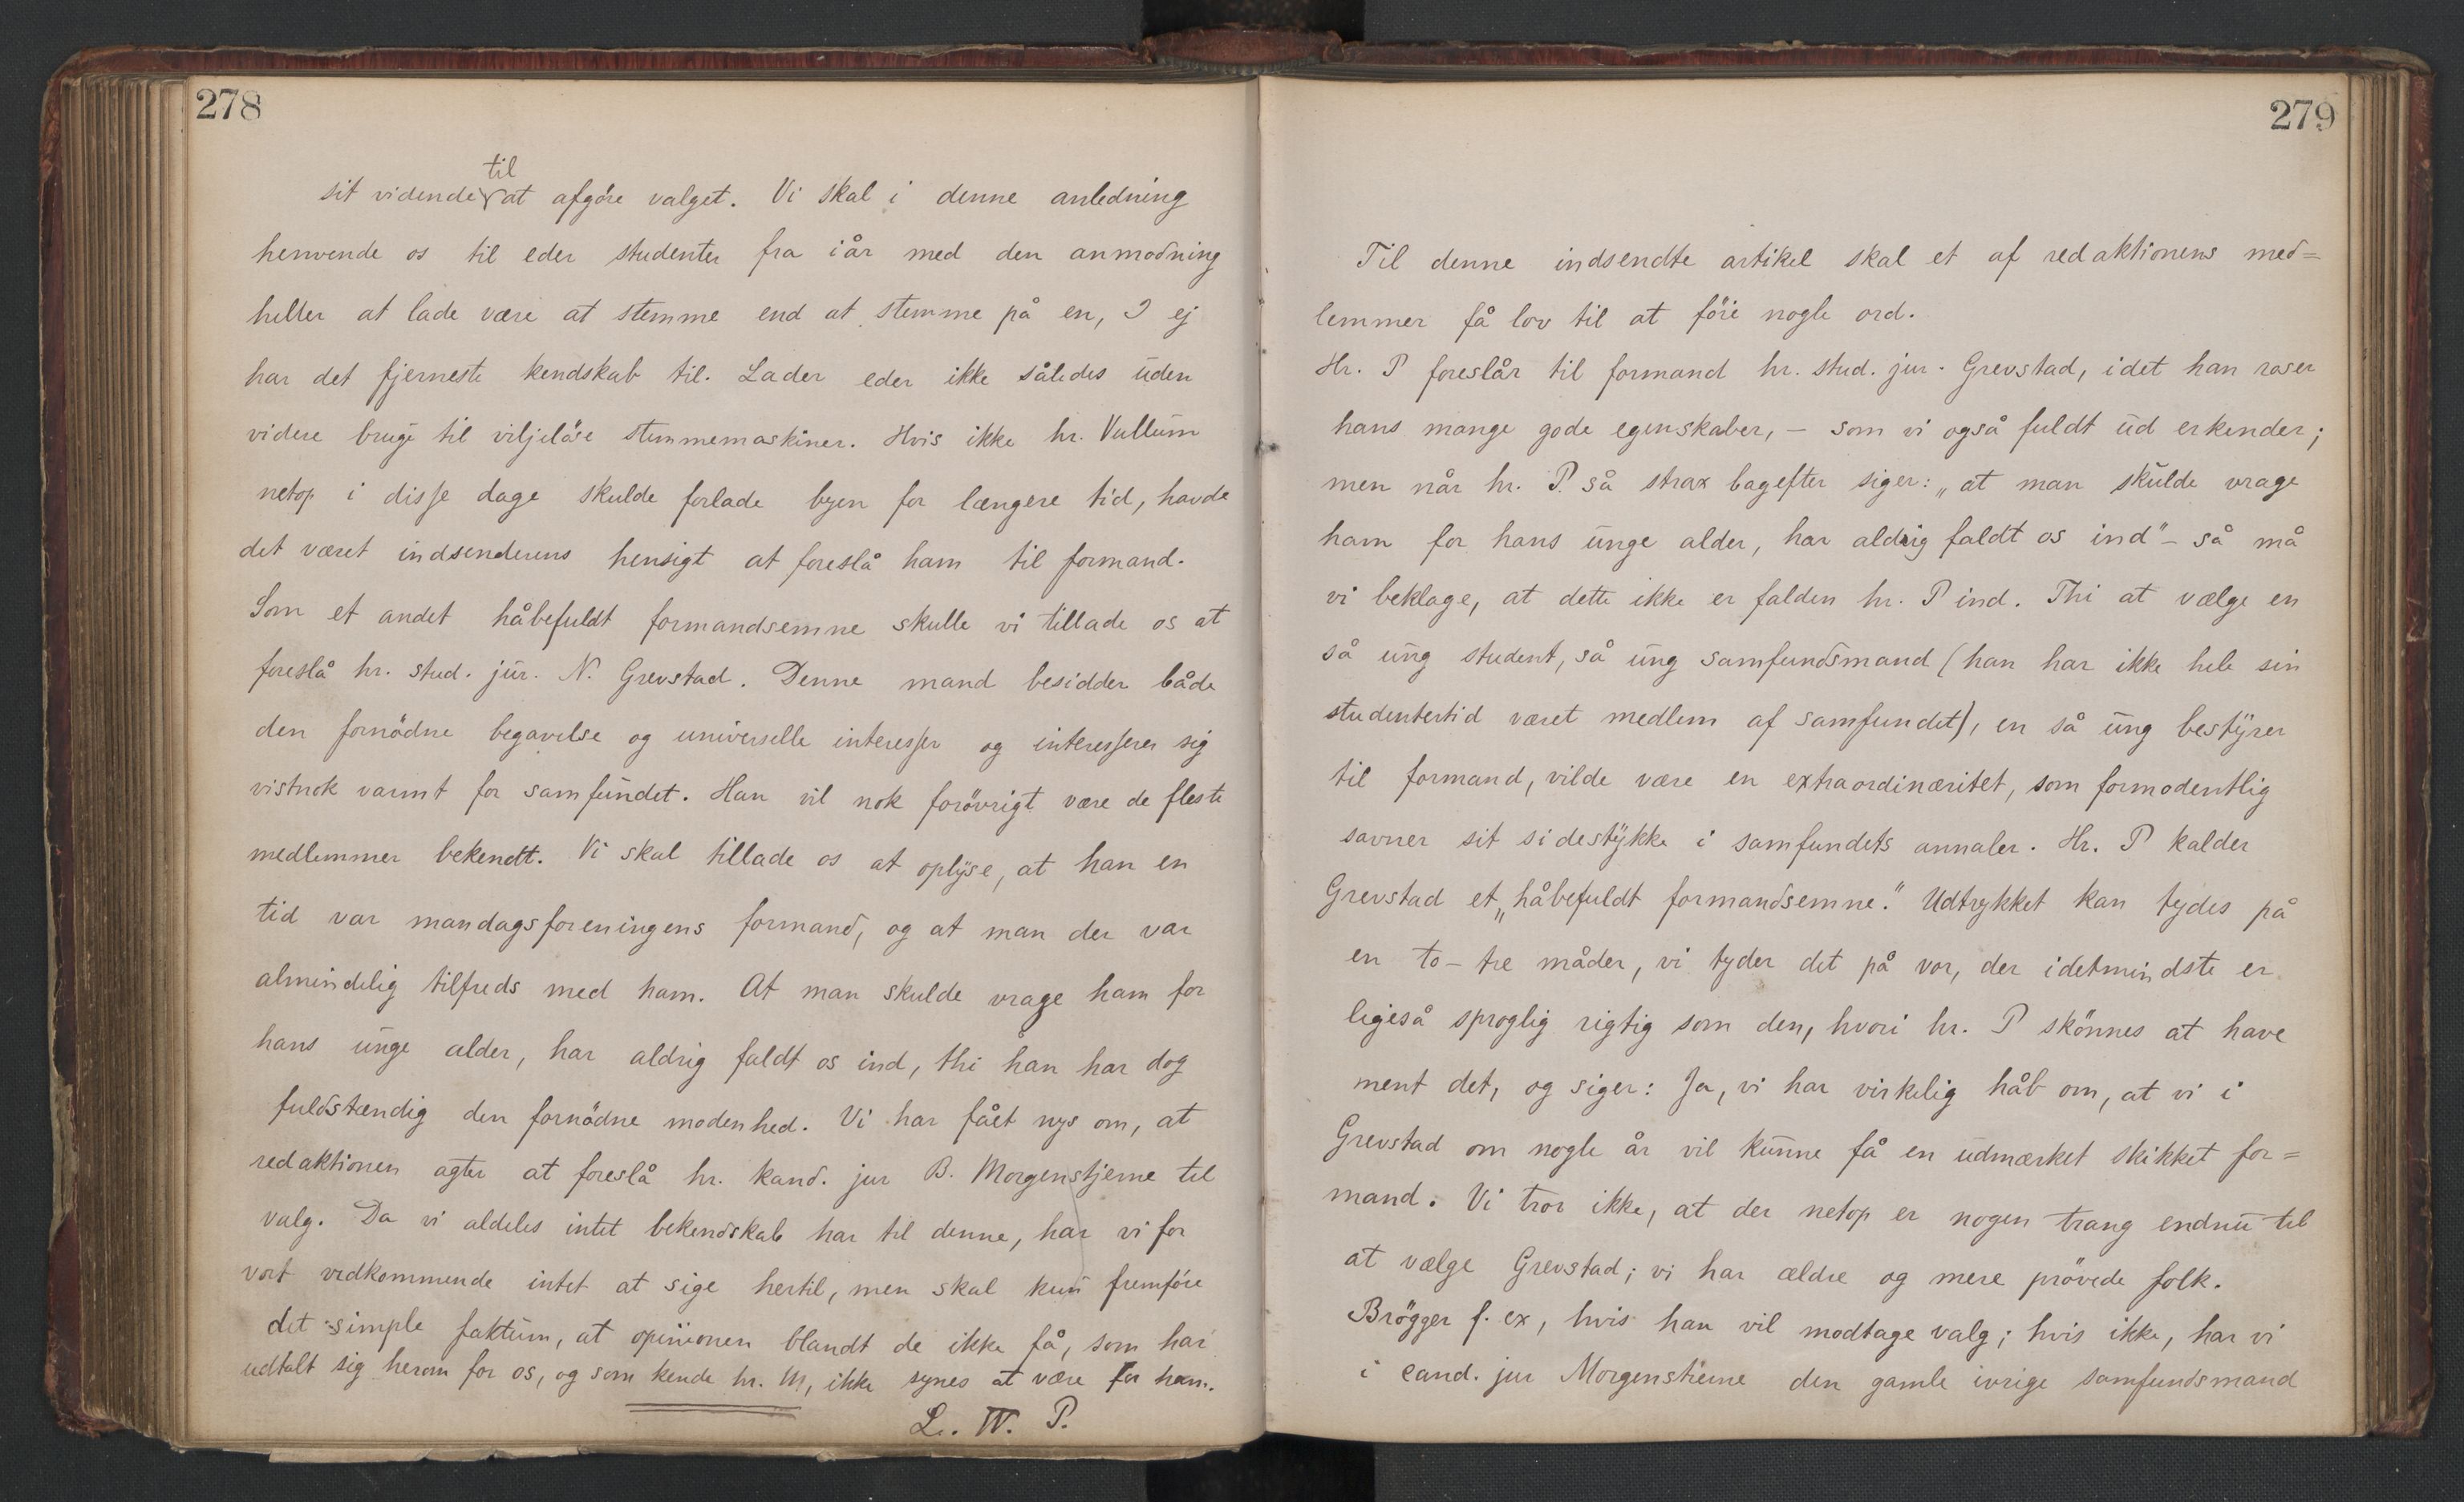 278
til
sit vidende at afgöre valget. Vi skal i denne anledning
henvende os til eder studenter fra iår med den anmodning
heller at lade være at stemme end at stemme på en, I ej
har det fjerneste kendskab til. Lader eder ikke således uden
videre bruge til viljelöse stemmemaskiner. Hvis ikke hr. Vullum
netop i disse dage skulde forlade byen for længere tid, havde
det været indsenderens hensigt at foreslå ham til formand.
Som et andet håbefuldt formandsemne skulle vi tillade os at
foreslå hr. stud. jur. N. Grevstad. Denne mand besidder både
den fornödne begavelse og universelle interesser og interesserer sig
vistnok varmt for samfundet. Han vil nok forövrigt være de fleste
medlemmer bekendt. Vi skal tillade os at oplyse, at han en
tid var mandagsforeningens formand, og at man der var
almindelig tilfreds med ham. At man skulde vrage ham for
hans unge alder, har aldrig faldt os ind, thi han har dog
fuldstændig den fornödne modenhed. Vi har fået nys om, at
redaktionen agter at foreslå hr. kand. jur B. Morgenstjerne til
valg. Da vi aldeles intet bekendskab har til denne, har vi for
vort vedkommende intet at sige hertil, men skal kun fremföre
det simple faktum, at opinionen blandt de ikke få, som har
udtalt sig herom for os, og som kende hr. M, ikke synes at være for ham.
L. W. P.
279
Til denne indsendte artikel skal et af redaktionens med=
lemmer få lov til at föie nogle ord.
Hr. P foreslår til formand hr. stud. jur. Grevstad, idet han roser
hans mange gode egenskaber, – som vi også fuldt ud erkender;
men når hr. P. så strax bagefter siger: „at man skulde vrage
ham for hans unge alder, har aldrig faldt os ind" – så må
vi beklage, at dette ikke er falden hr. P ind. Thi at vælge en
så ung student, så ung samfundsmand (han har ikke hele sin
studentertid været medlem af samfundet), en så ung bestyrer
til formand, vilde være en extraordinæritet, som formodentlig
savner sit sidestykke i samfundets annaler. Hr. P kalder
Grevstad et „håbefuldt formandsemne." Udtrykket kan tydes på
en to – tre måder, vi tyder det på vor, der idetmindste er
ligeså sproglig rigtig som den, hvori hr. P skönnes at have
ment det, og siger: Ja, vi har virkelig håb om, at vi i
Grevstad om nogle år vil kunne få en udmærket skikket for=
mand. Vi tror ikke, at der netop er nogen trang endnu til
at vælge Grevstad; vi har ældre og mere prövede folk.
Brögger f. ex, hvis han vil modtage valg; hvis ikke, har vi
i cand. jur Morgenstierne den gamle ivrige samfundsmand